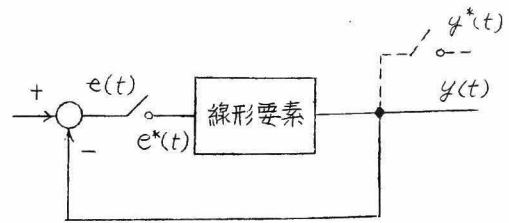 y*(t)
+
e(t)
線形要素
y(t)
e*(t)
−